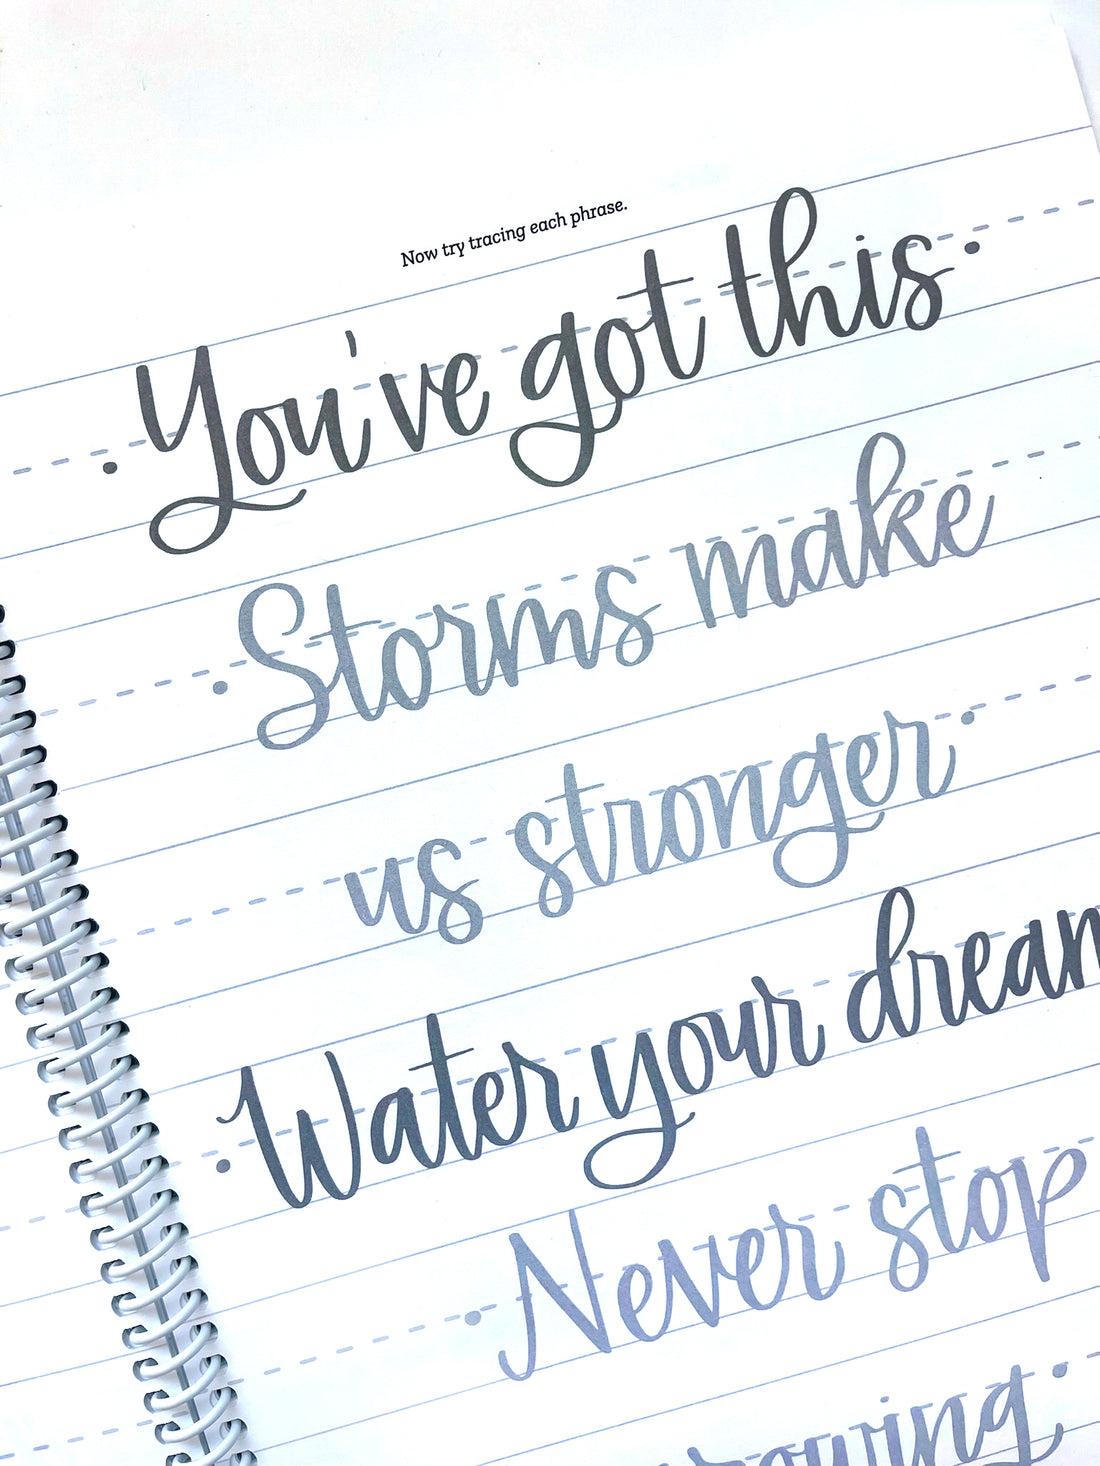 Now try tracing each phrase.
• You've got this •
• Storms make
us stronger •
• Water your
• Never stop